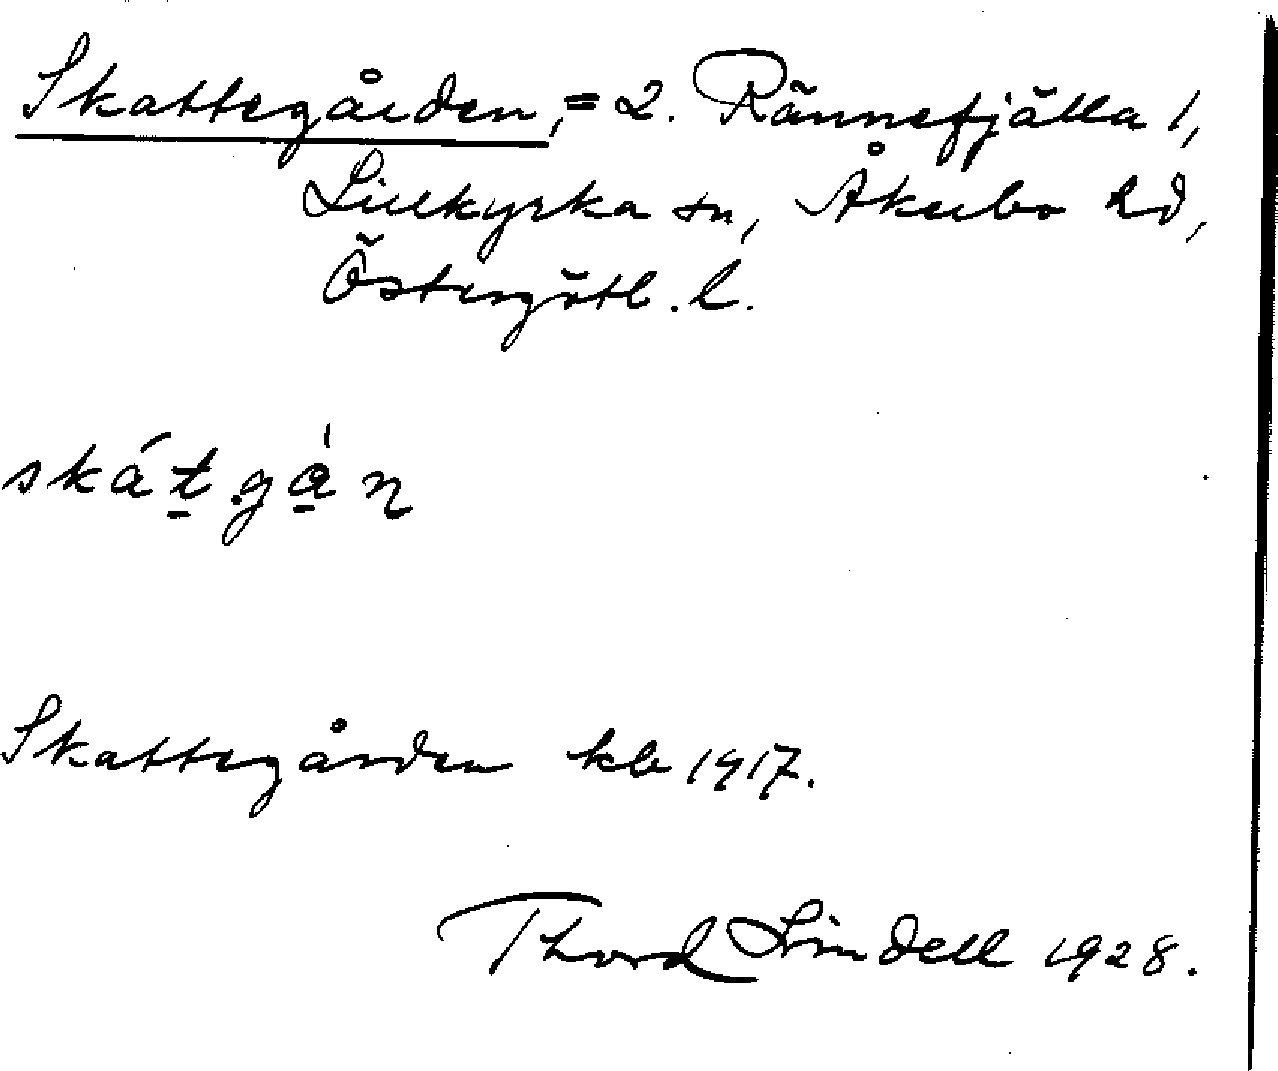 Skattegården, = 2. Rännefjälla 1,
Lillkyrka sn, Åkerbo hd,
Östergötl. l.
skát̠.gǻ̠ɳ
Skattegården kb 1917.
Thord Lindell 1928.